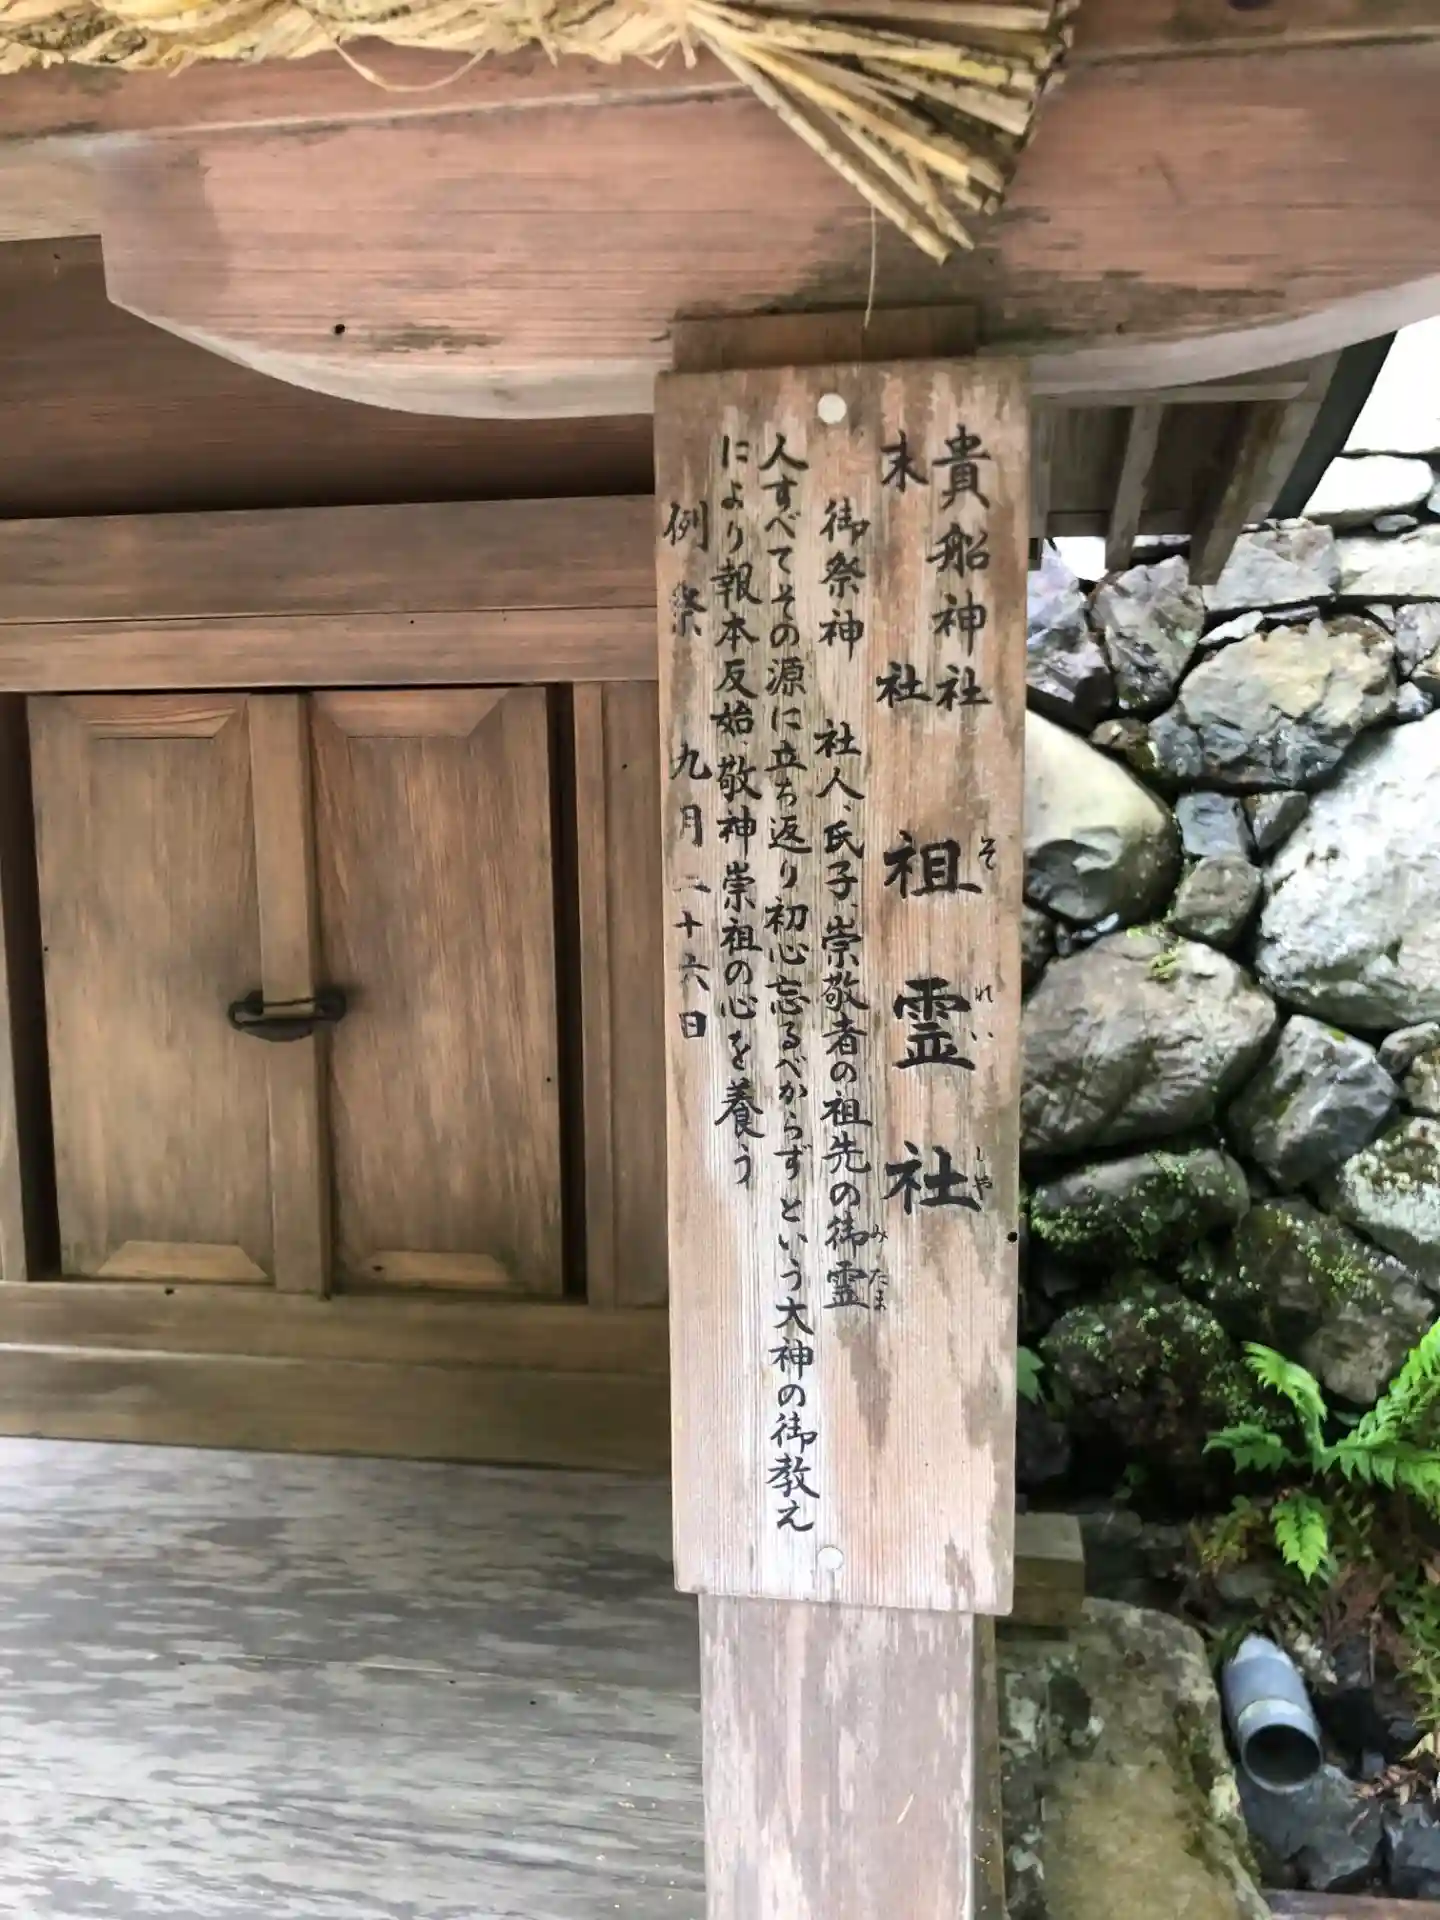 貴船神社
末社
祖霊社
それいしゃ
御祭神 社人、氏子、崇敬者の祖先の御霊
みたま
人すべてその源に立ち返り初心忘るべからずという大神の御教え
により報本反始、敬神崇祖の心を養う
例祭 九月二十六日